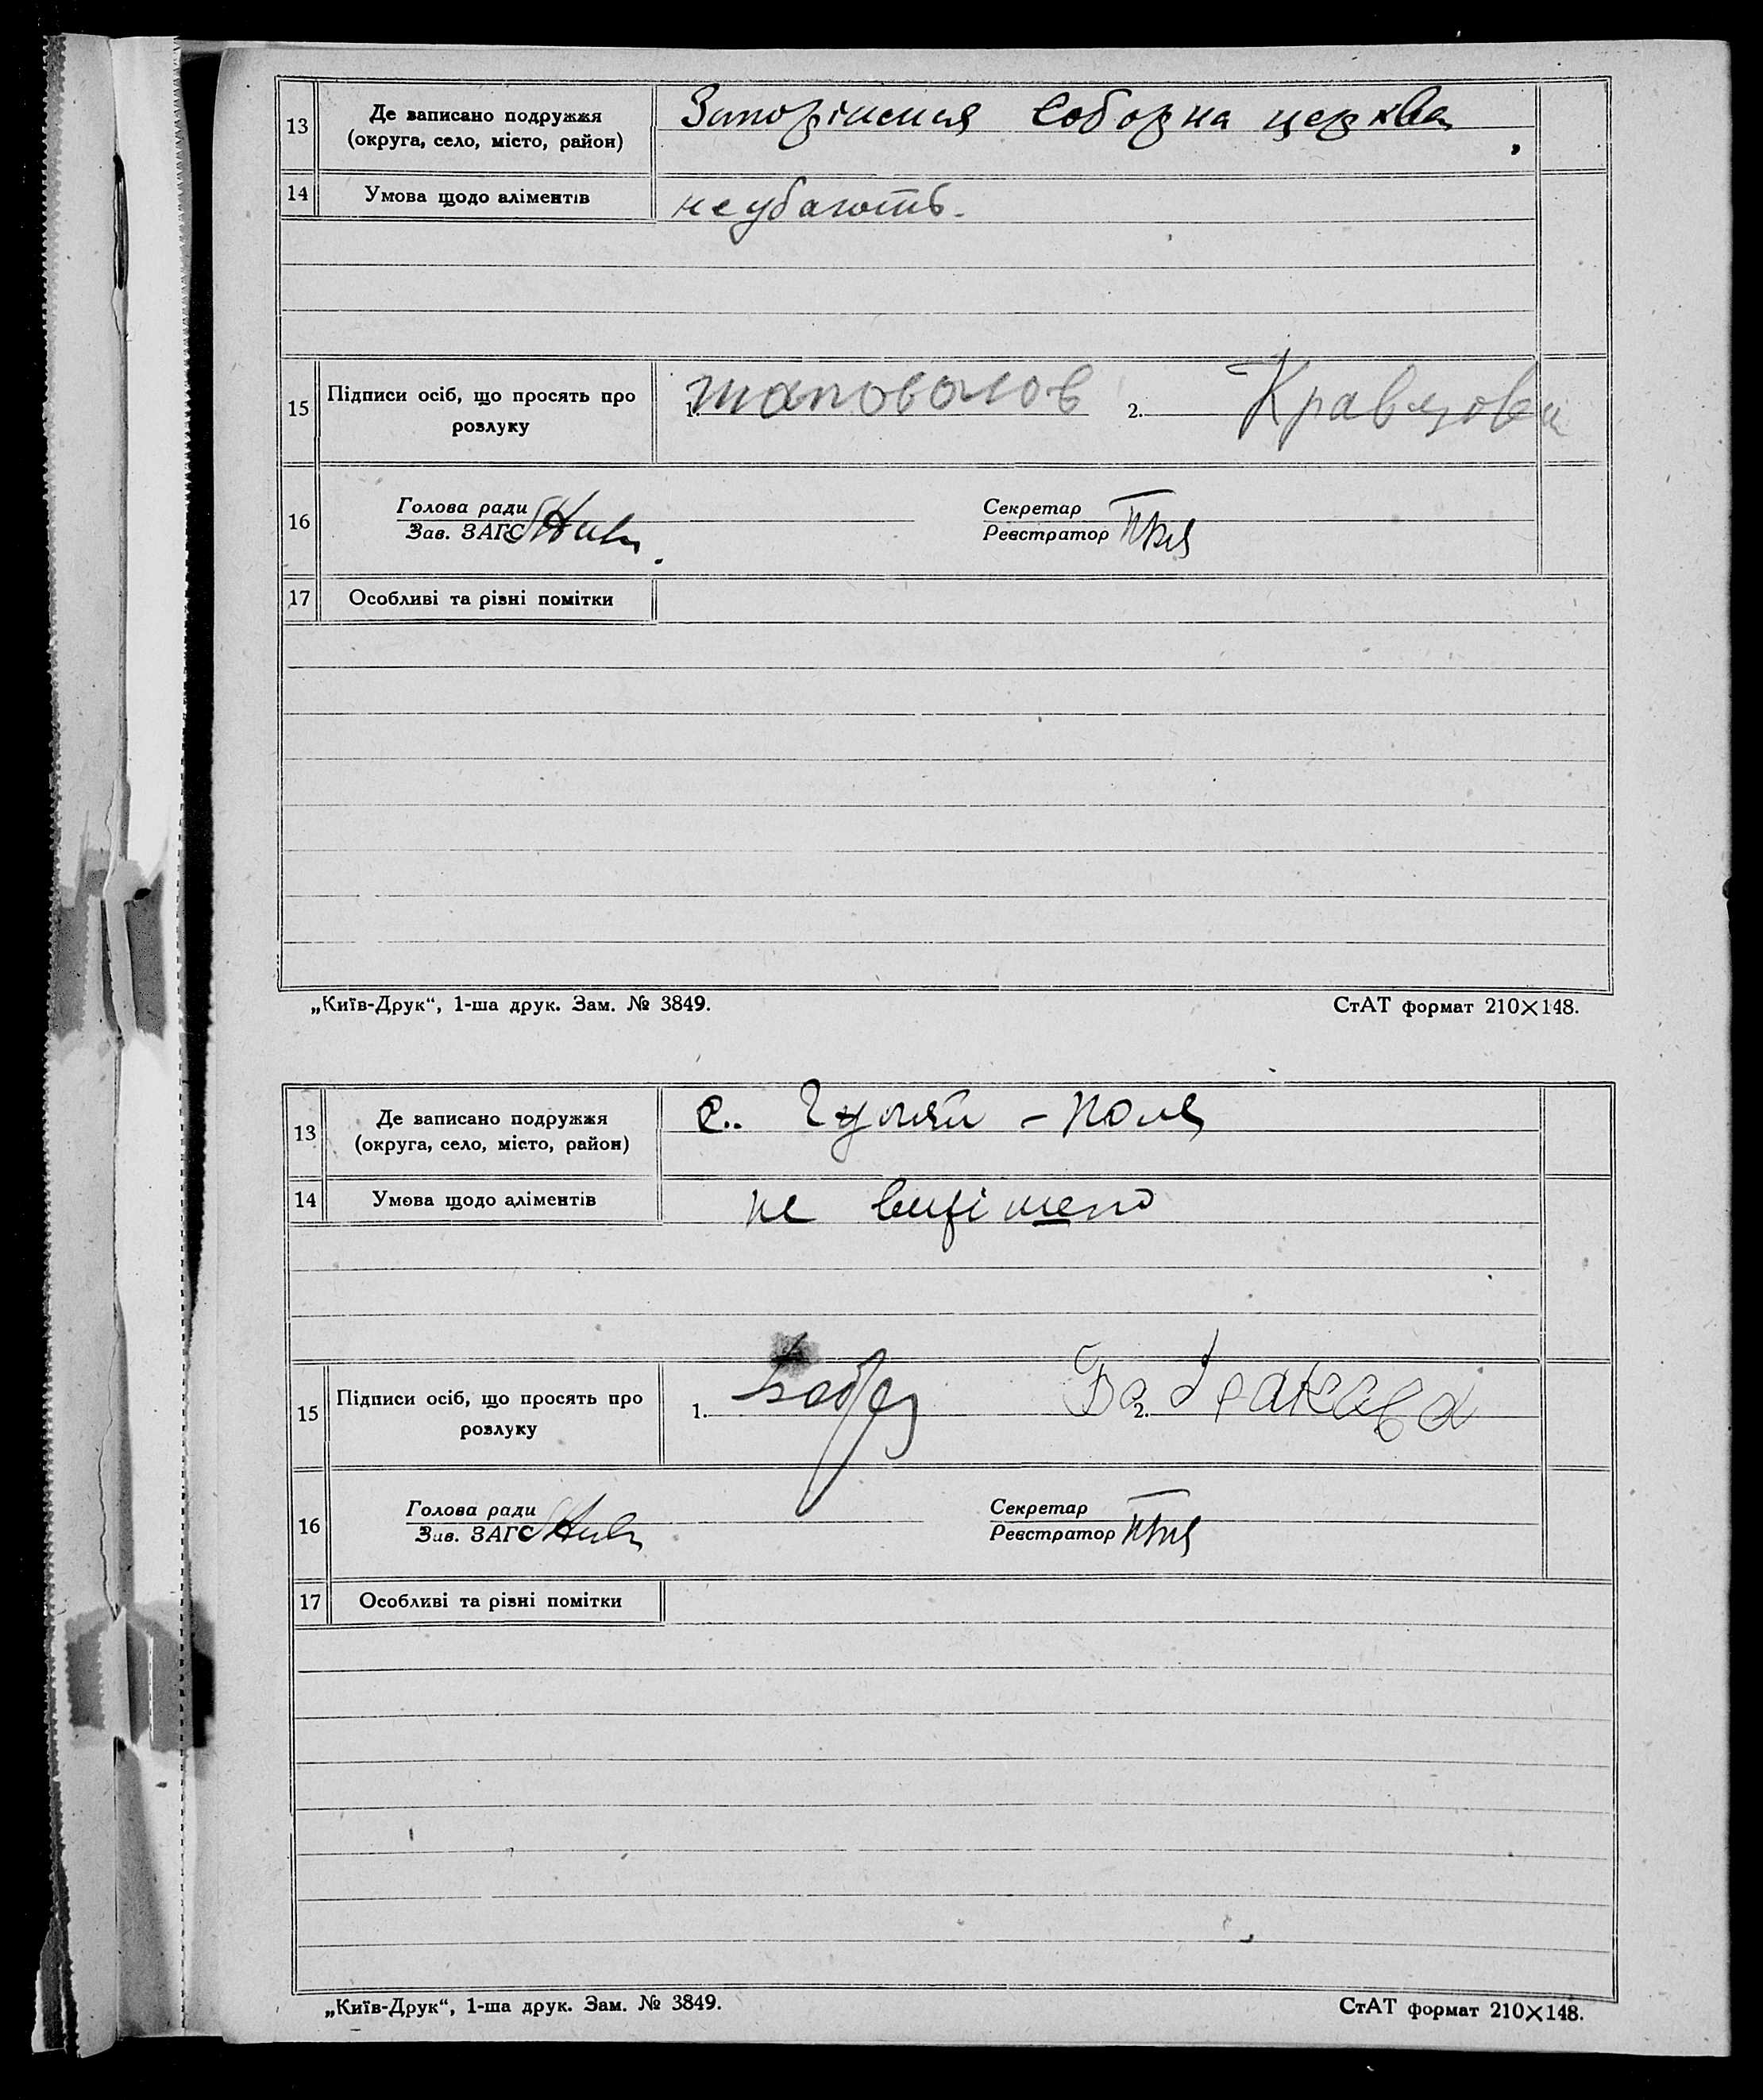 13 Де записано подружжя (округа, село, місто, район) Соборна церква
14 Умова щодо аліментів
15 Підписи осіб, що просять про розлуку 1. Шаповалов 2. Кравцова
16 Голова ради Секретар
Зав. ЗАГС Реєстратор
17 Особливі та різні помітки
„Київ-Друк“, 1-ша друк. Зам. № 3849. СтАТ формат 210×148.
13 Де записано подружжя (округа, село, місто, район) с. Гуляй-Поля
14 Умова щодо аліментів не вирішено
15 Підписи осіб, що просять про розлуку 1. 2.
16 Голова ради Секретар
Зав. ЗАГС Реєстратор
17 Особливі та різні помітки
„Київ-Друк“, 1-ша друк. Зам. № 3849. СтАТ формат 210×148.